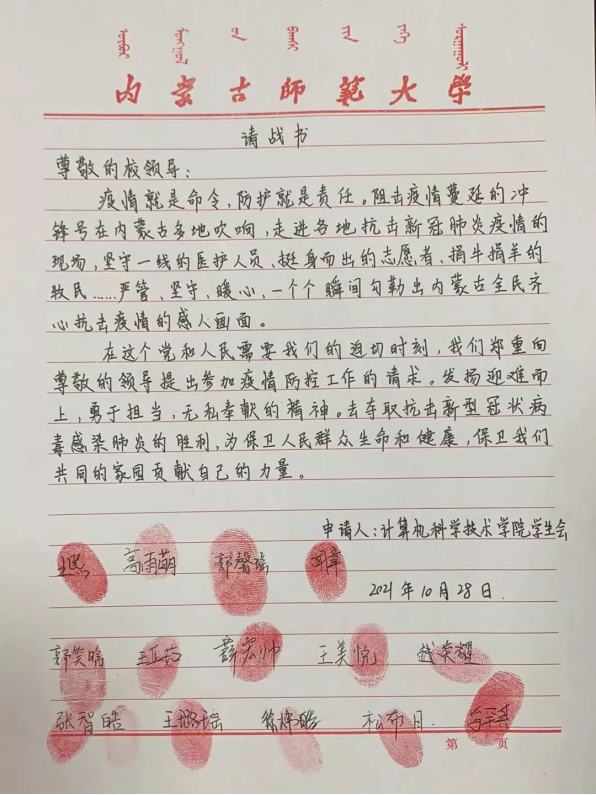 内蒙古师范大学
请战书
尊敬的校领导：
疫情就是命令，防护就是责任。阻击疫情蔓延的冲
锋号在内蒙古多地吹响，走进各地抗击新冠肺炎疫情的
现场，坚守一线的医护人员、挺身而出的志愿者、捐牛捐羊的
牧民……严管、坚守、暖心，一个个瞬间勾勒出内蒙古全民齐
心抗击疫情的感人画面。
在这个党和人民需要我们的迫切时刻，我们郑重向
尊敬的领导提出参加疫情防控工作的请求。发扬迎难而
上，勇于担当，无私奉献的精神。去夺取抗击新型冠状病
毒感染肺炎的胜利，为保卫人民群众生命和健康，保卫我们
共同的家园贡献自己的力量。
申请人：计算机科学技术学院学生会
高雨萌 郭馨瑶
2021年10月28日.
郭笑晗 王正茹 薛宏帅 王美悦 赵荣耀
张智皓 王璐瑶 松布日
第 页